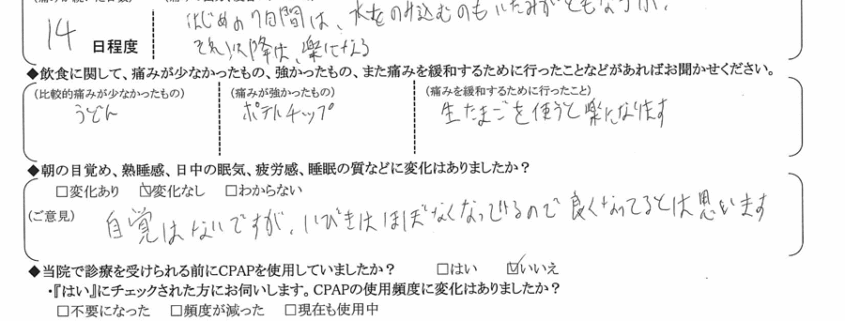 14 日程度
はじめの7日間は、水をのみ込むのもいたみがともなうが、
それ以降は、楽になる
◆飲食に関して、痛みが少なかったもの、強かったもの、また痛みを緩和するために行ったことなどがあればお聞かせください。
(比較的痛みが少なかったもの) (痛みが強かったもの) (痛みを緩和するために行ったこと)
うどん ポテトチップ 生たまごを使うと楽になります
◆朝の目覚め、熟睡感、日中の眠気、疲労感、睡眠の質などに変化はありましたか?
□変化あり ☑変化なし □わからない
(ご意見) 自覚はないですが、いびきはほぼなくなってるので良くなってるとは思います
◆当院で診療を受けられる前にCPAPを使用していましたか? □はい ☑いいえ
・『はい』にチェックされた方にお伺いします。CPAPの使用頻度に変化はありましたか?
□不要になった □頻度が減った □現在も使用中